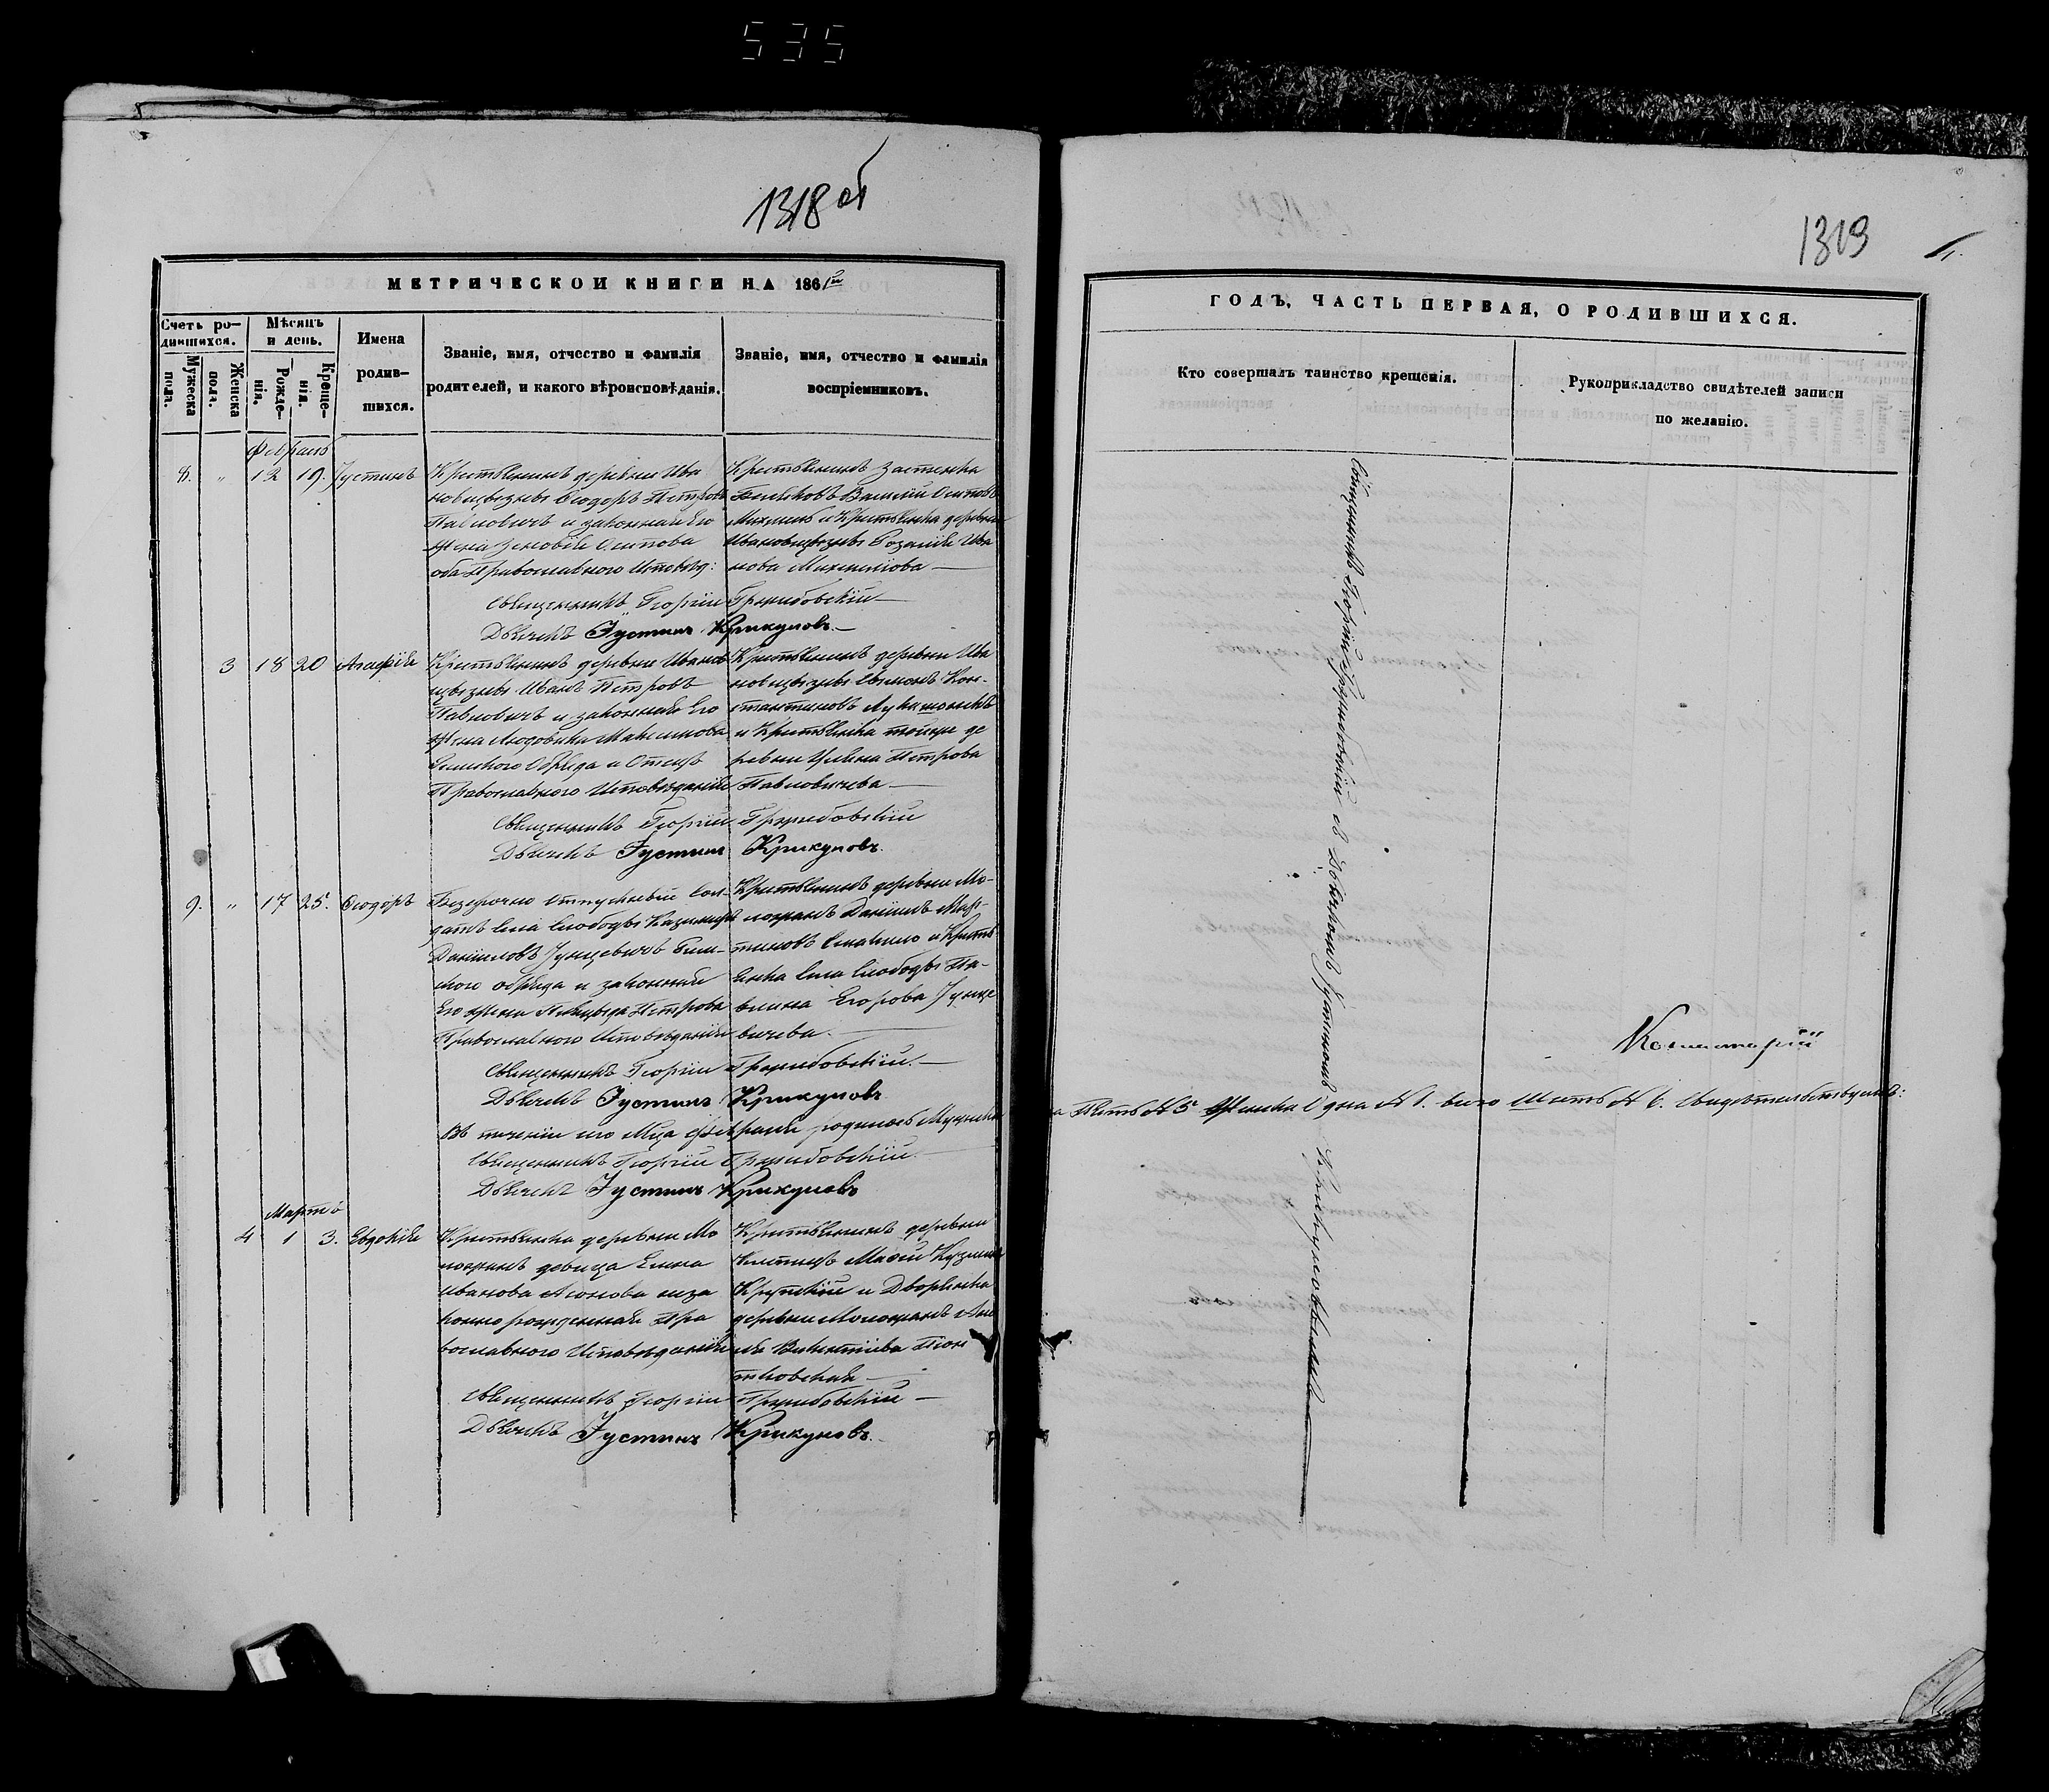 535
1318 об
МЕТРИЧЕСКОЙ КНИГИ НА 1861й
Счетъ ро-
дившихся.
Мѣсяцъ
и день.
Имена
родив-
шихся.
Званіе, имя, отчество и фамилія
родителей, и какого вѣроисповѣданія.
Званіе, имя, отчество и фамилія
воспріемниковъ.
Мужеска
пола.
Женска
пола.
Рожде-
нія.
Креще-
нія.
Февраль
8. „ 12 19. Іустинъ
Крестьянинъ деревни Ива
Ѳеодоръ Петровъ
Павловичъ и законная его
жена Зеновія Осипова
оба Православнаго Исповѣд:
Крестьянинъ застенка
Василій Осиповъ
и Крестьянка деревни
Розалія Ива
нова
Священникъ Георгій Гржибовскій
Дьячекъ Іустинъ Крикуновъ
3 18 20 Агафія
Крестьянинъ деревни Иванов
Иванъ Петровъ
Павловичъ и законная его
жена Людовика Максимова
Римскаго Обряда и Отецъ
Православнаго Исповѣданія
Крестьянинъ деревни Ива
Симонъ Кон-
стантиновъ Лукашонекъ
и Крестьянка тойже де
ревни Петрова
Павловичева
Священникъ Георгій Гржибовскій
Дьячекъ Іустинъ Крикуновъ.
9. „ 17 25. Ѳеодоръ
Безсрочно Отпускный Сол-
датъ села Слободы Казимиръ
Даниловъ Гунцевичъ Рим-
скаго обряда и законная
Его жена Петрова
Православнаго Исповѣданія
Крестьянинъ деревни Мо-
Даніилъ Мар-
тиновъ и Кресть
янка села Слободы Па-
влина Егорова Гунце
вичева.
Священникъ Георгій Гржибовскій.
Дьячекъ Іустинъ Крикуновъ
Въ теченіи сего Мца Февраля родилось Мужеска
Пять № 5 Женска Одна № 1. всего Шесть № 6. Свидѣтельствуемъ:
Священникъ Георгій Гржибовскій.
Дьячекъ Іустинъ Крикуновъ
Мартъ
4 1 3. Евдокія
Крестьянка деревни Мо
девица Елена
Иванова неза
конно рожденная Пра
вославнаго Исповѣданія
Крестьянинъ деревни
Матѳій Кузминъ
Крупскій и Дворянка
деревни
Викентіева Піон
тковская
Священникъ Георгій Гржибовскій
Дьячекъ Іустинъ Крикуновъ.
1319
ГОДЪ, ЧАСТЬ ПЕРВАЯ, О РОДИВШИХСЯ.
Кто совершалъ таинство крещенія.
Рукоприкладство свидѣтелей записи
по желанію.
Священникъ Георгій Гржибовскій съ Дьячкомъ Іустиномъ Крикуновымъ